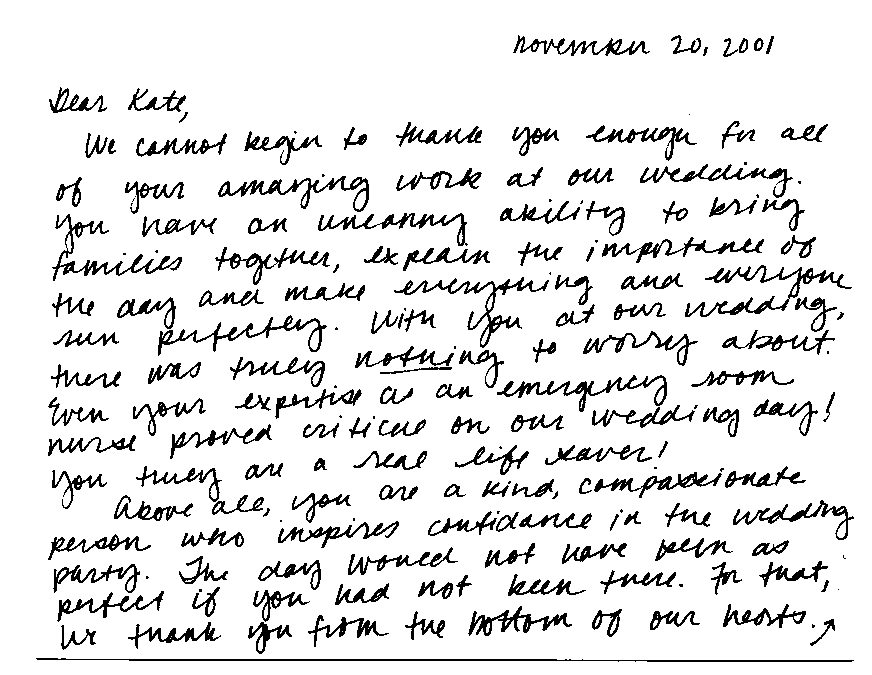 November 20, 2001
Dear Kate,
We cannot begin to thank you enough for all
of your amazing work at our wedding.
You have an uncanny ability to bring
families together, explain the importance of
the day and make everything and everyone
run perfectly. With you at our wedding,
there was truly nothing to worry about.
Even your expertise as an emergency room
nurse proved critical on our wedding day!
You truly are a real life saver!
Above all, you are a kind, compassionate
person who inspires confidance in the wedding
party. The day would not have been as
perfect if you had not been there. For that,
we thank you from the bottom of our hearts. ↗